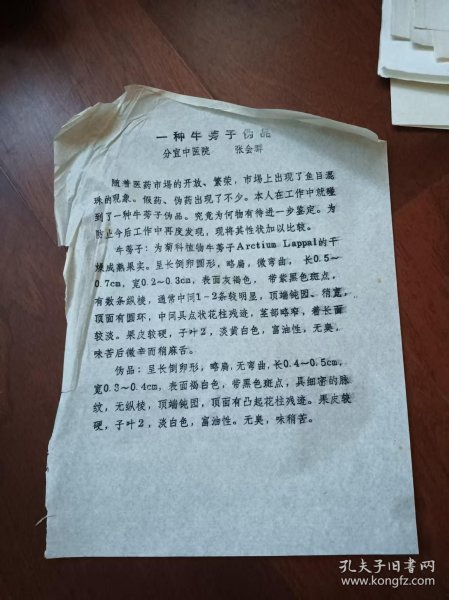 一种牛蒡子伪品
分宜中医院 张会群
随着医药市场的开放、繁荣，市场上出现了鱼目混
珠的现象。假药、伪药出现了不少。本人在工作中就碰
到了一种牛蒡子伪品。究竟为何物有待进一步鉴定。为
防止今后工作中再度发现，现将其性状加以比较。
牛蒡子：为菊科植物牛蒡子Arctium Lappal的干
燥成熟果实。呈长倒卵圆形，略扁，微弯曲，长0.5～
0.7cm，宽0.2～0.3cm，表面灰褐色，带紫黑色斑点，
有数条纵棱，通常中间1-2条较明显，顶端钝园、稍宽，
顶面有圆环，中间具点状花柱残迹，基部略窄，着长面
较淡。果皮较硬，子叶2，淡黄白色，富油性，无臭，
味苦后微辛而稍麻舌。
伪品：呈长倒卵形，略扁，无弯曲，长0.4～0.5cm，
宽0.3～0.4cm，表面褐白色，带黑色斑点，具细密的脉
纹，无纵棱，顶端钝园，顶面有凸起花柱残迹。果皮较
硬，子叶2，淡白色，富油性。无臭，味稍苦。
孔夫子旧书网
www.kongfz.com